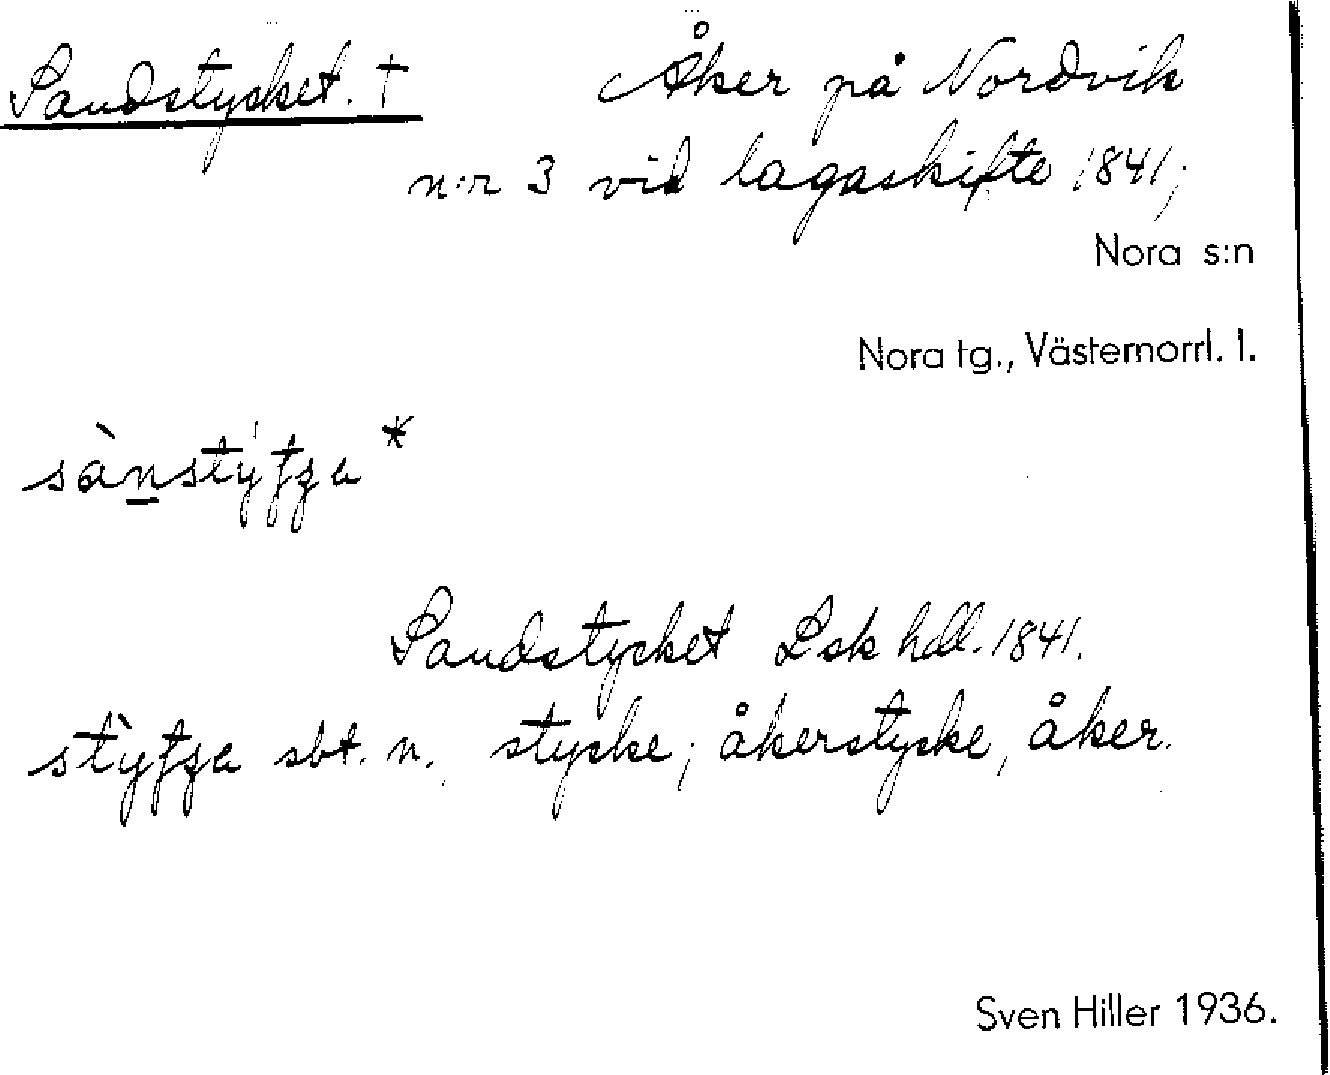 Sandstycket. † Åker på Nordvik
n:r 3 vid lagaskifte 1841;
Nora s:n
Nora tg., Västernorrl. l.
Sandstycket Lsk hdl. 1841.
sbt. n. stycke; åkerstycke, åker.
Sven Hiller 1936.